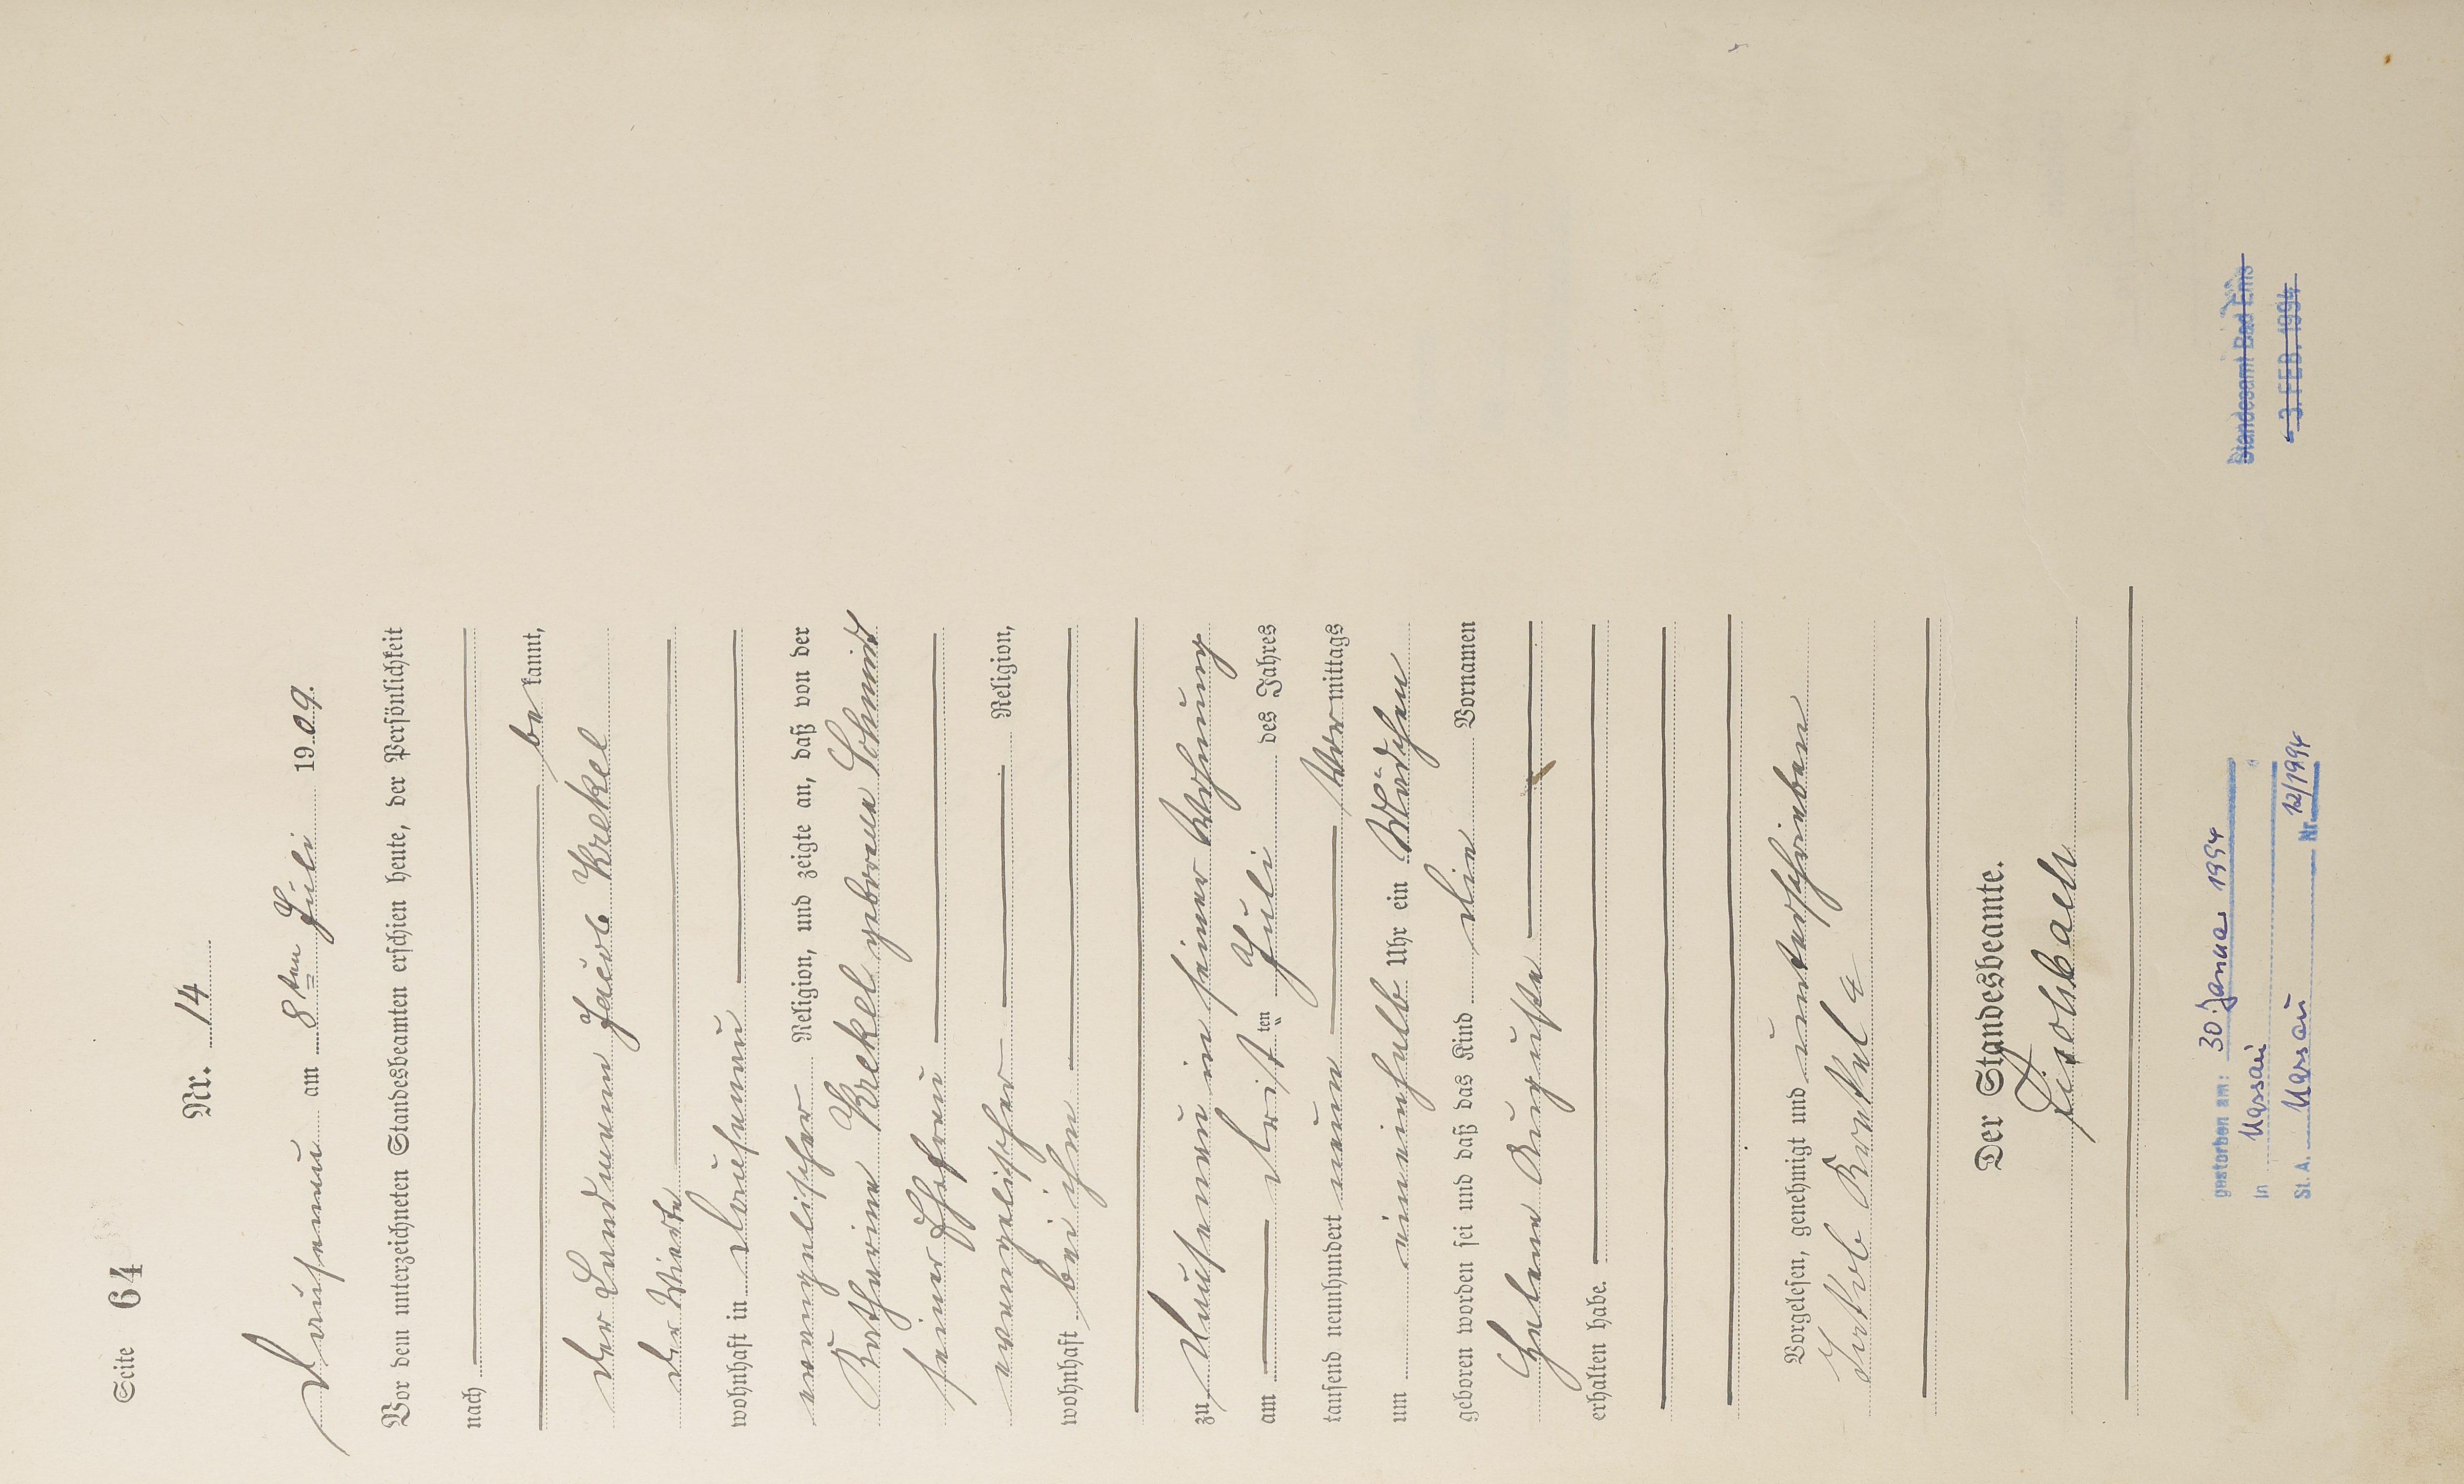 Seite 64
Nr. 14
Dausenau am 8ten Juli 1909.
Vor dem unterzeichneten Standesbeamten erschien heute, der Persönlichkeit
nach
bekannt,
der Landmann Jacob Krekel
der Vierte
wohnhaft in Dausenau
evangelischer Religion, und zeigte an, daß von der
Katharine Krekel geborene Schmidt
seiner Ehefrau
evangelischer Religion,
wohnhaft bei ihm
zu Dausenau in seiner Wohnung
am drit ten Juli des Jahres
tausend neunhundert neun Vormittags
um eineinhalb Uhr ein Mädchen
geboren worden sei und daß das Kind die Vornamen
Helene Auguste
erhalten habe.
Vorgelesen, genehmigt und unterschrieben
Jakob Krekel 4
Der Standesbeamte.
gestorben am: 30. Januar 1994
in Nassau
St. A. Nassau Nr. 12/1994
Standesamt Bad Ems
- 3. FEB. 1994